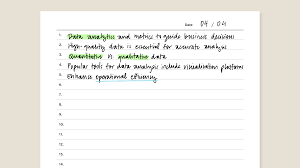 Date: 04 / 04
1. Data analytics and metrics to guide business decisions
2. High-quality data is essential for accurate analysis
3. Quantitative vs. qualitative data
4. Popular tools for data analysis include visualization platforms
5. Enhance operational efficiency
6.
7.
8.
9.
10.
11.
12.
13.
14.